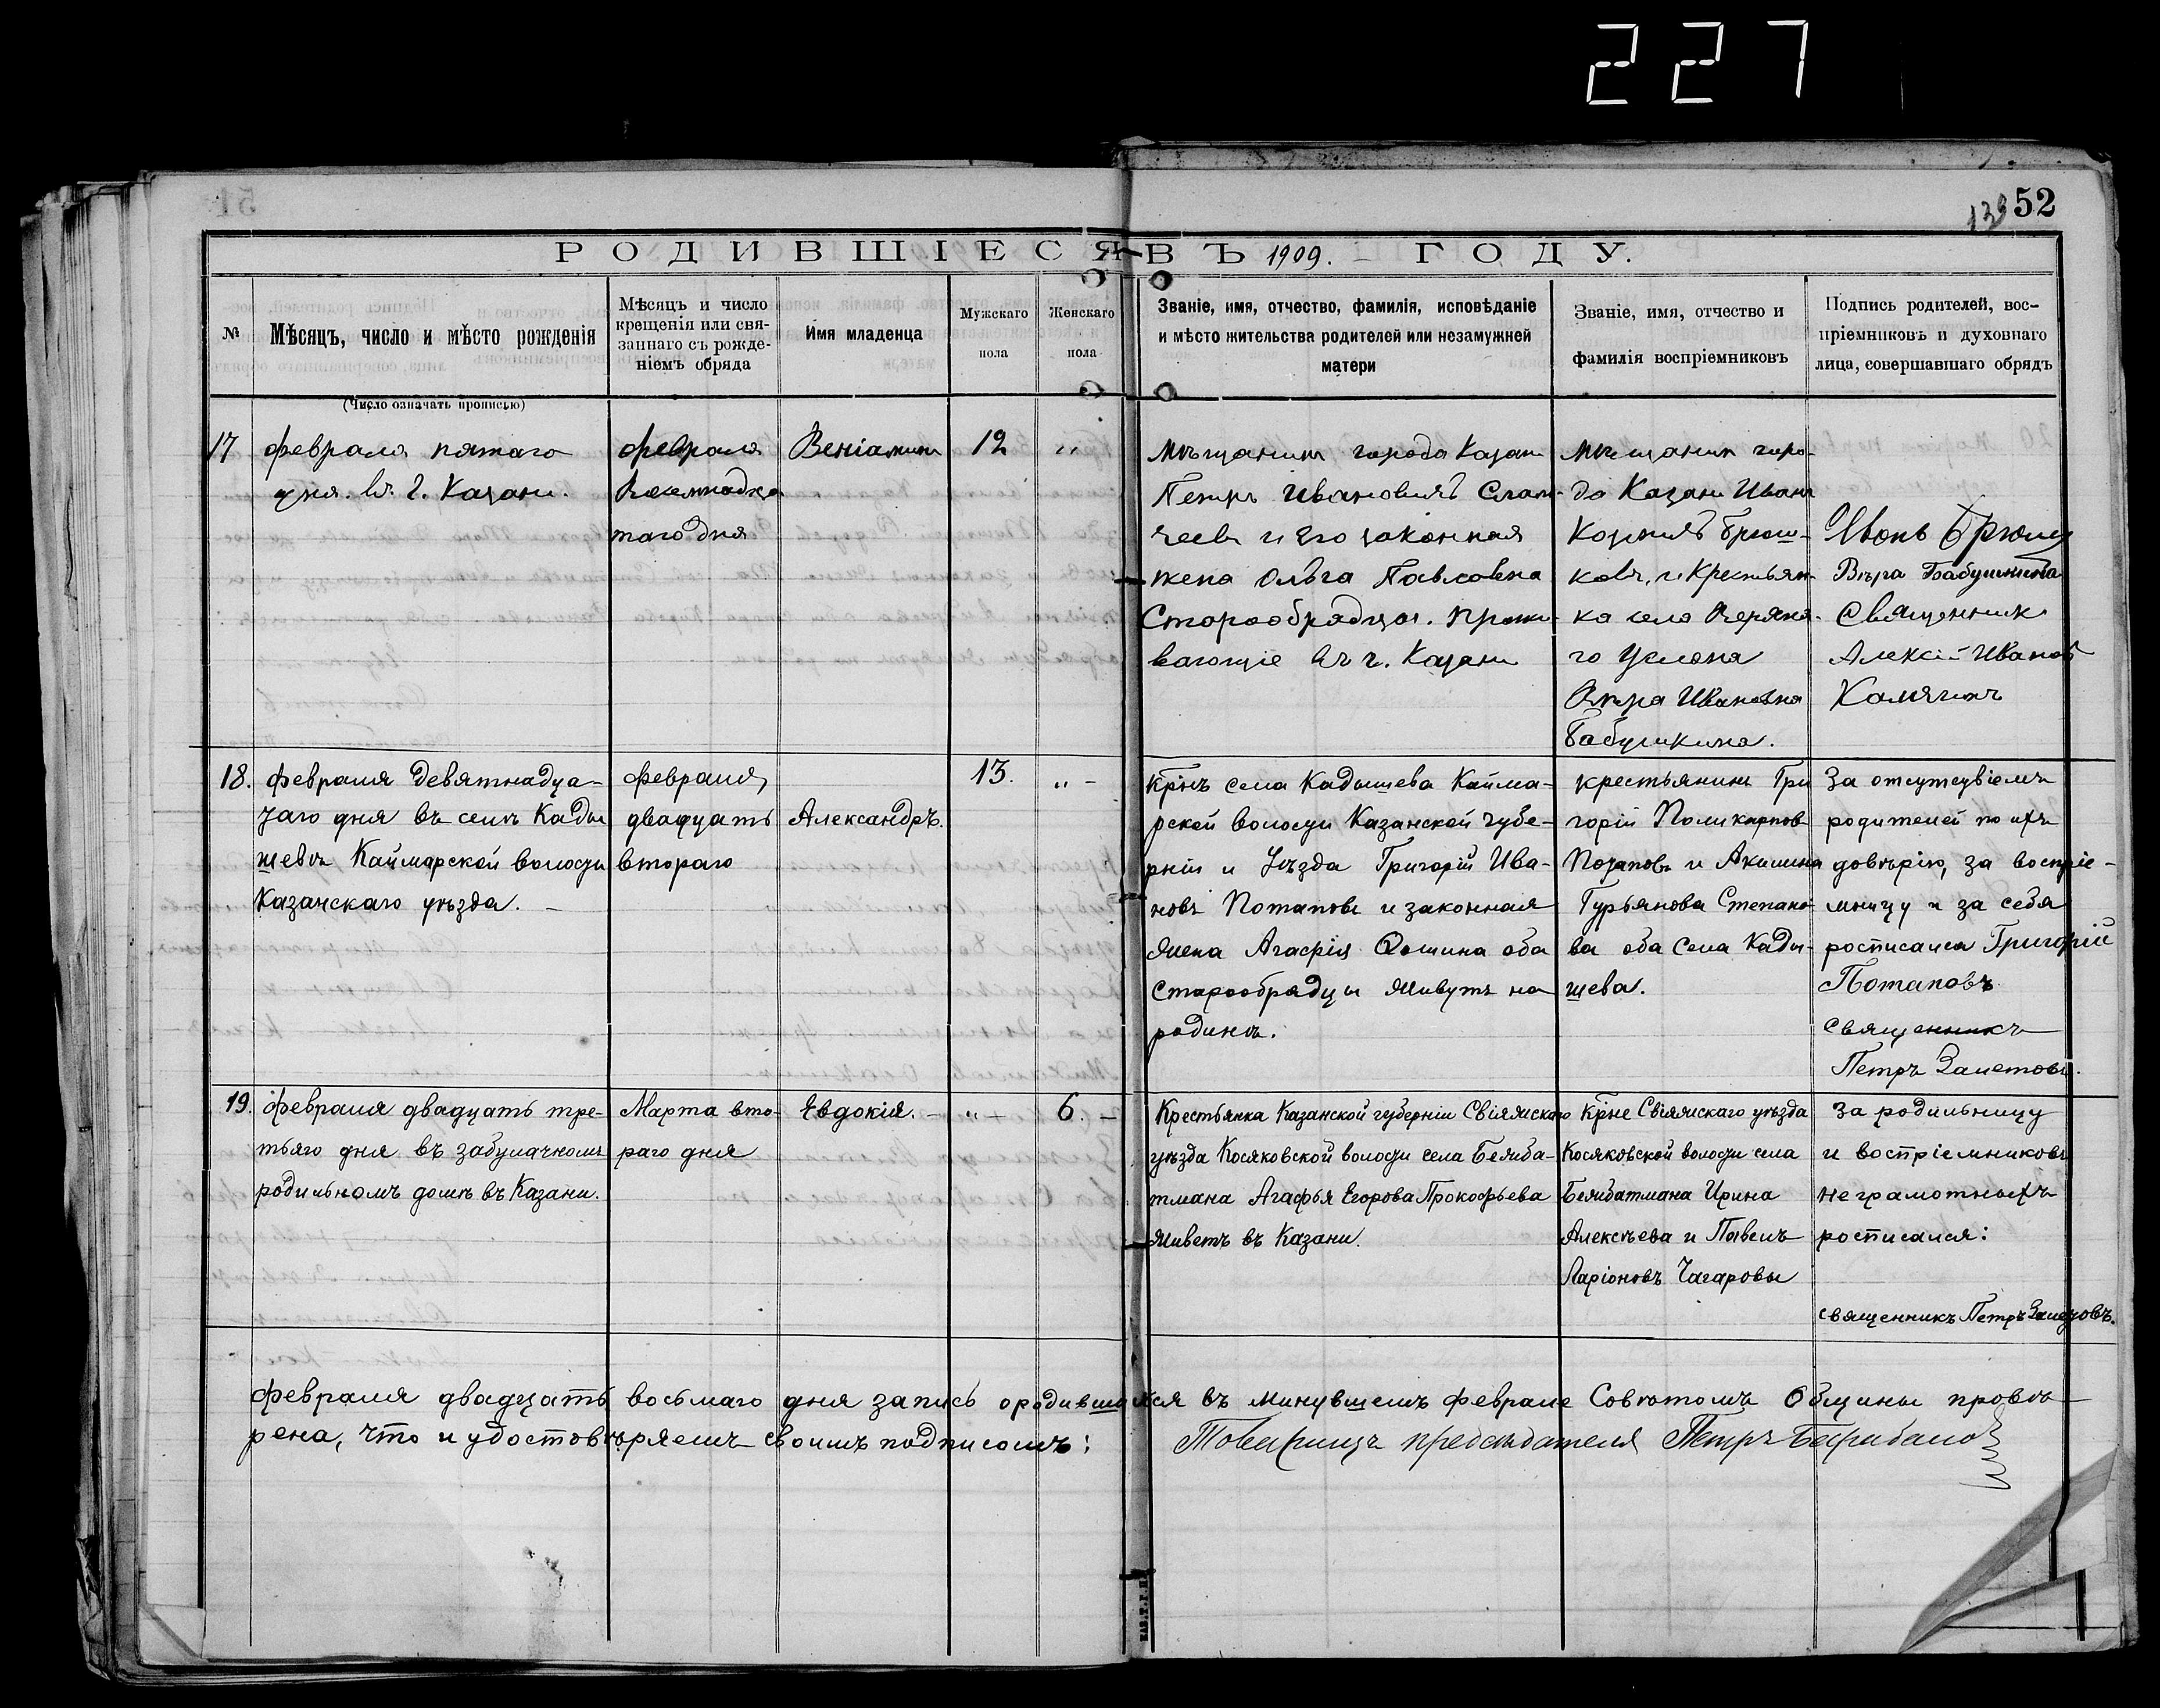 227
52
РОДИВШІЕСЯ ВЪ 1909. ГОДУ.
№
Мѣсяцъ, число и мѣсто рожденія
(Число означать прописью)
Мѣсяцъ и число
крещенія или свя-
заннаго съ рожде-
ніемъ обряда
Имя младенца
Мужскаго
пола
Женскаго
пола
Званіе, имя, отчество, фамилія, исповѣданіе
и мѣсто жительства родителей или незамужней
матери
Званіе, имя, отчество и
фамилія воспріемниковъ
Подпись родителей, вос-
пріемниковъ и духовнаго
лица, совершавшаго обрядъ
17
февраля пятаго
дня. въ г. Казани.
февраля
таго дня
Веніаминъ
12
"
мѣщанинъ города Казани
Петръ Ивановичъ
и его законная
жена Ольга Павловна
Старообрядцы. прожи-
вающіе въ г. Казани
мѣщанинъ горо-
да Казани Иванъ
Козмичъ Брюш-
ковъ, и Крестьян-
ка села
го Услона
Вѣра Ивановна
Бабушкина.
Иванъ
Вѣра Бабушкина
Священникъ
Алексій Иванов
Калягинъ
18.
февраля девятнадца-
таго дня въ селѣ Кады
шевѣ Каймарской волости
Казанскаго уѣзда. –
февраля,
двадцать
втораго
Александръ.
13.
" -
Крнъ села Кадышева Кайма-
рской волости Казанской губе-
рніи и Уѣзда Григорій Ива-
новъ Потаповъ и законная
жена Агафія Фомина оба
Старообрядцы живутъ на
родинѣ.
крестьянинъ Гри
горій Поликарпов
Потаповъ и Акилина
Гурьянова Степано-
ва оба Села Кады-
шева.
За отсутсвіемъ
родителей по ихъ
довѣрію, за воспріе-
мницу и за себя
росписался Григорій
Потаповъ
священникъ
Петръ Залетовъ.
19.
февраля двадцать тре-
тьяго дня въ забулачномъ
родильномъ домѣ въ Казани.
Марта вто-
раго дня
Евдокія. –
" –
6. –
Крестьянка Казанской губерніи Свіяжскаго
уѣзда Косяковской волости села Бежба-
тмана Агафья Егорова Прокофьева
живетъ въ Казани.
Крне Свіяжскаго уѣзда
Косяковской волости села
Бежбатмана Ирина
Алексѣева и Павелъ
Ларіоновъ Чагаровы
За родильницу
и воспріемниковъ
неграмотныхъ
росписался:
священникъ Петръ Залетовъ.
февраля двадцать восьмаго дня запись о родившихся въ минувшемъ феврале Совѣтомъ Общины провѣ-
рена, что и удостовѣряемъ своимъ подписомъ:
Товарищъ председателя Петръ